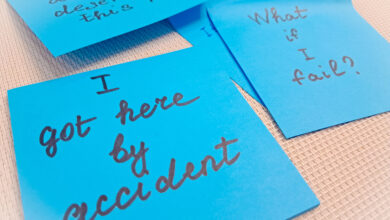 deserve
this
What
if
I
fail?
I
got here
by
accident